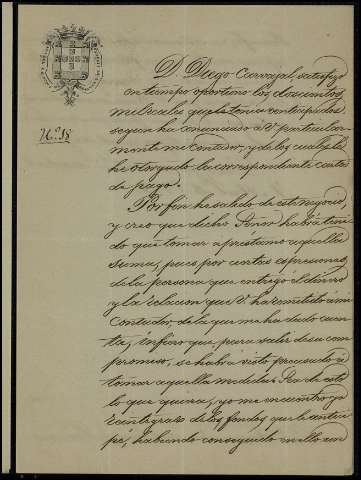 D. Diego Carvajal, satisfizo
en tiempo oportuno los doscientos
mil reales que le tenia anticipados
segun ha comunicado a V. particular-
mente mi Contador, y de los cuales le
he otorgado la correspondiente carta
de pago.
N.º 18
Por fin he salido de este negocio,
y creo que dicho Señor habrá teni-
do que tomar a préstamo aquella
suma, pues por ciertas espresiones
de la persona que entregó el dinero
y la relacion que V. ha remitido á mi
Contador, de la que me ha dado cuen-
ta, infiero que para salir de su com-
promiso, se habrá visto precisado á
tomar aquella medida. Sea de esto
lo que quiera, yo me encuentro ya
reintegrado de los fondos que le antici-
pé, habiendo conseguido en ello un